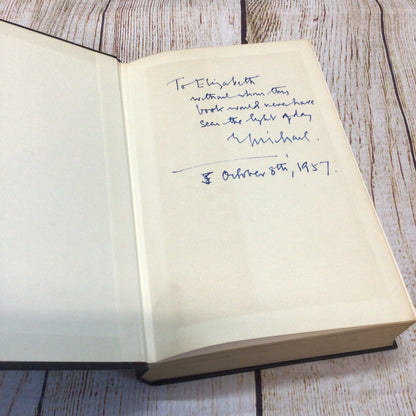 To Elizabeth
without whom this
book would never have
seen the light of day
Michael.
October 8th, 1957.